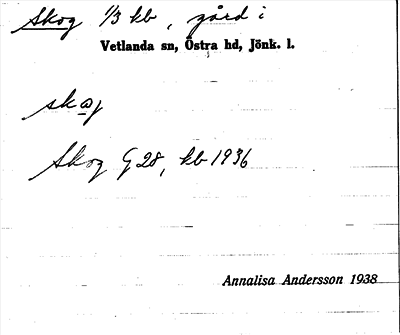 Skog 1/3 kb, gård i
Vetlanda sn, Östra hd, Jönk. l.
skog
Skog G 28, kb 1936
Annalisa Andersson 1938